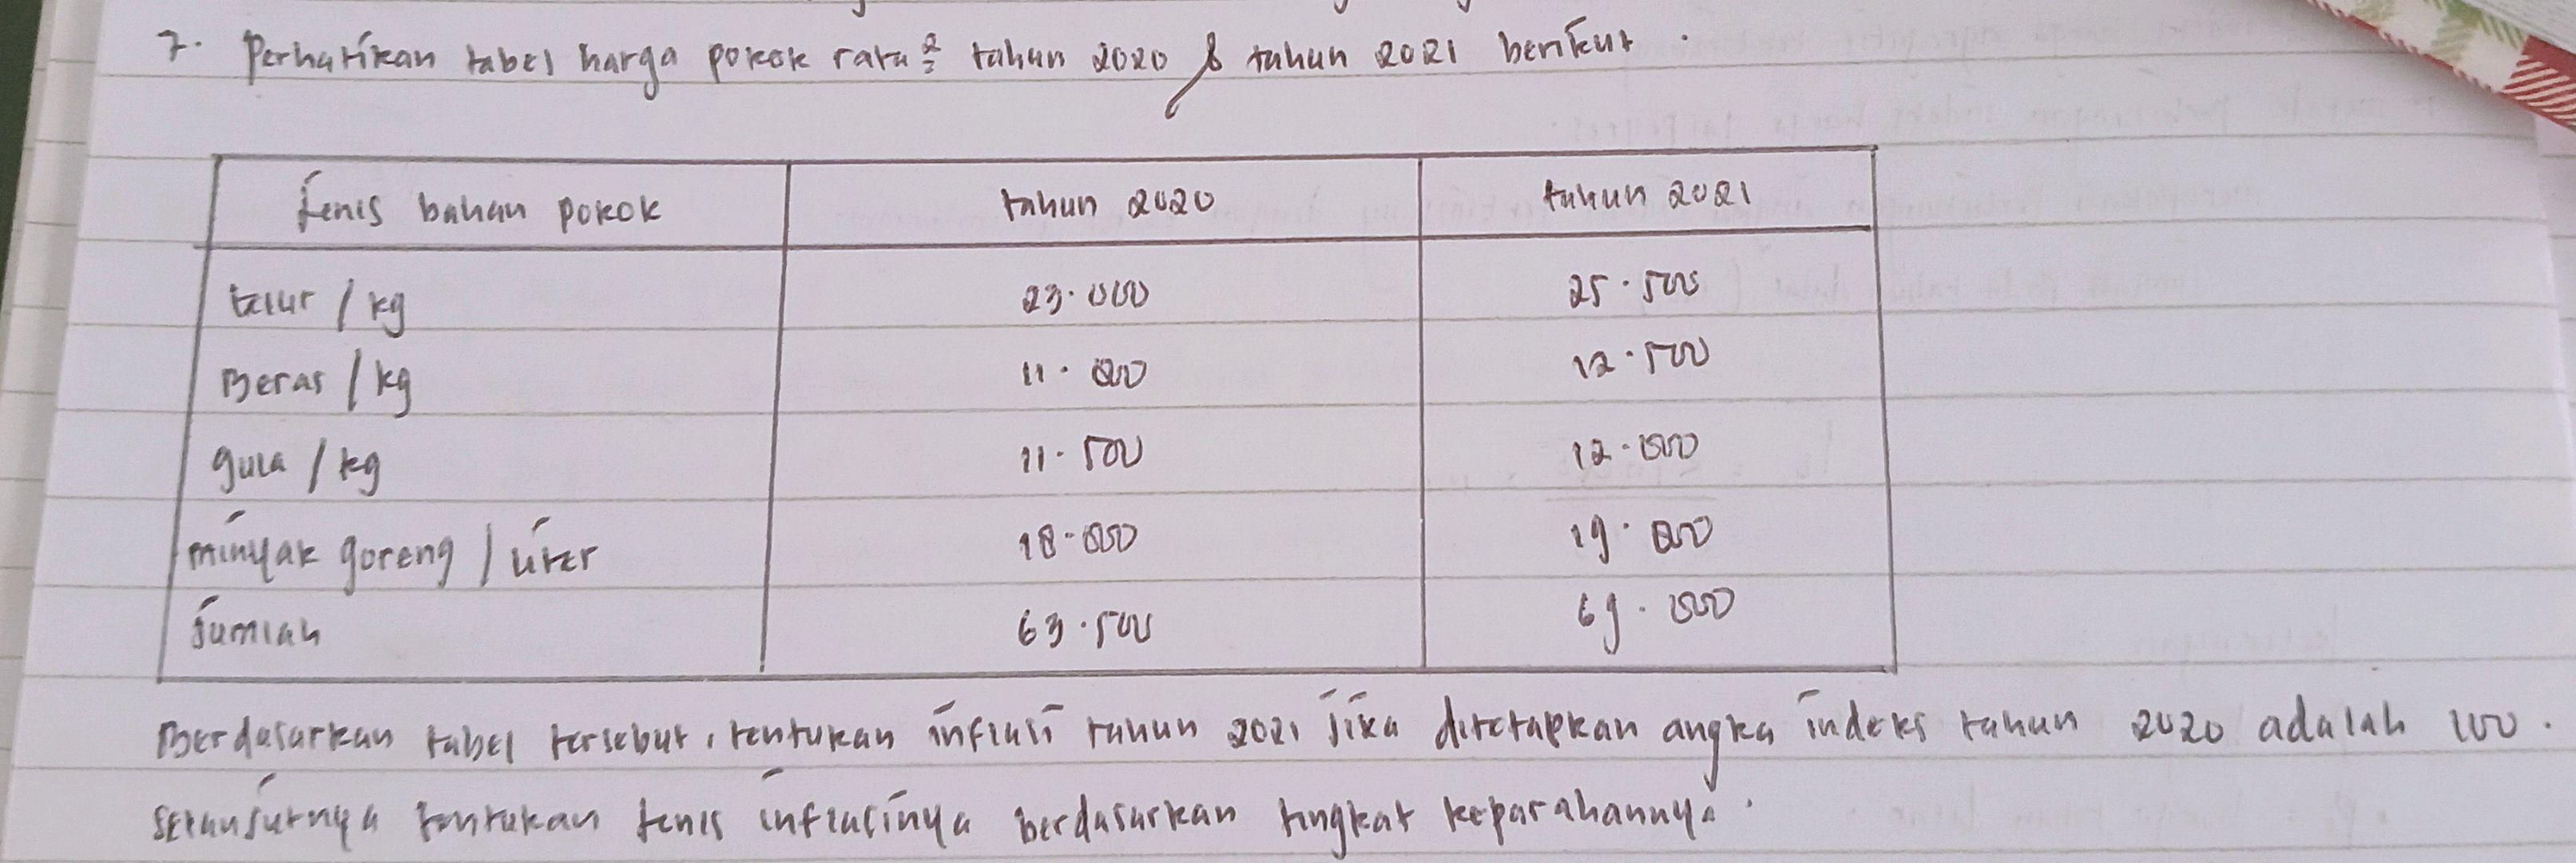 7. Perhatikan tabel harga pokok rata² tahun 2020 & tahun 2021 berikut :
Jenis bahan pokok tahun 2020 tahun 2021
telur / kg 23.000 25.500
Beras / kg 11.000 12.500
gula / kg 11.500 12.000
minyak goreng / liter 18.000 19.000
Jumlah 63.500 69.000
Berdasarkan tabel tersebut, tentukan inflasi tahun 2021 jika ditetapkan angka indeks tahun 2020 adalah 100.
Selanjutnya tentukan jenis inflasinya berdasarkan tingkat keparahannya.